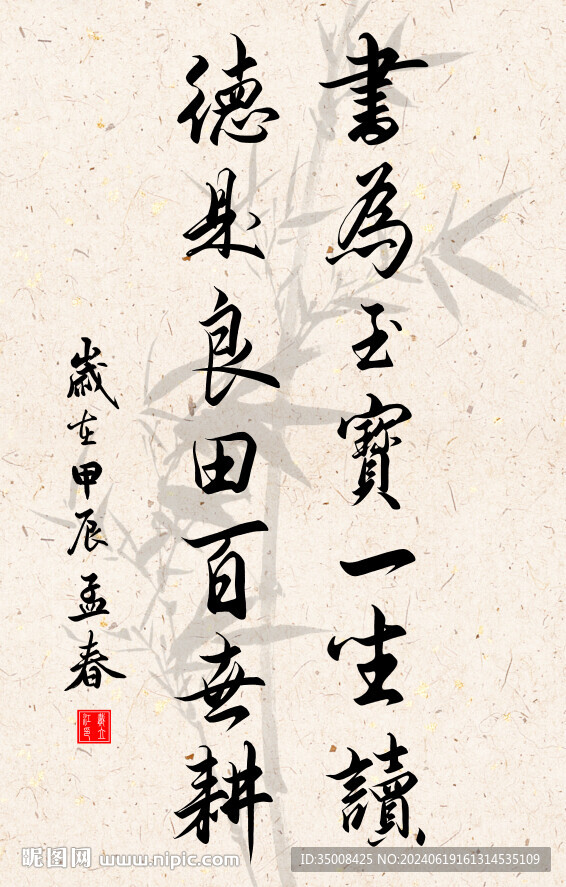 書為至寶一生讀
德是良田百世耕
歲在甲辰孟春
昵图网 www.nipic.com
ID:35008425 NO:20240619161314535109